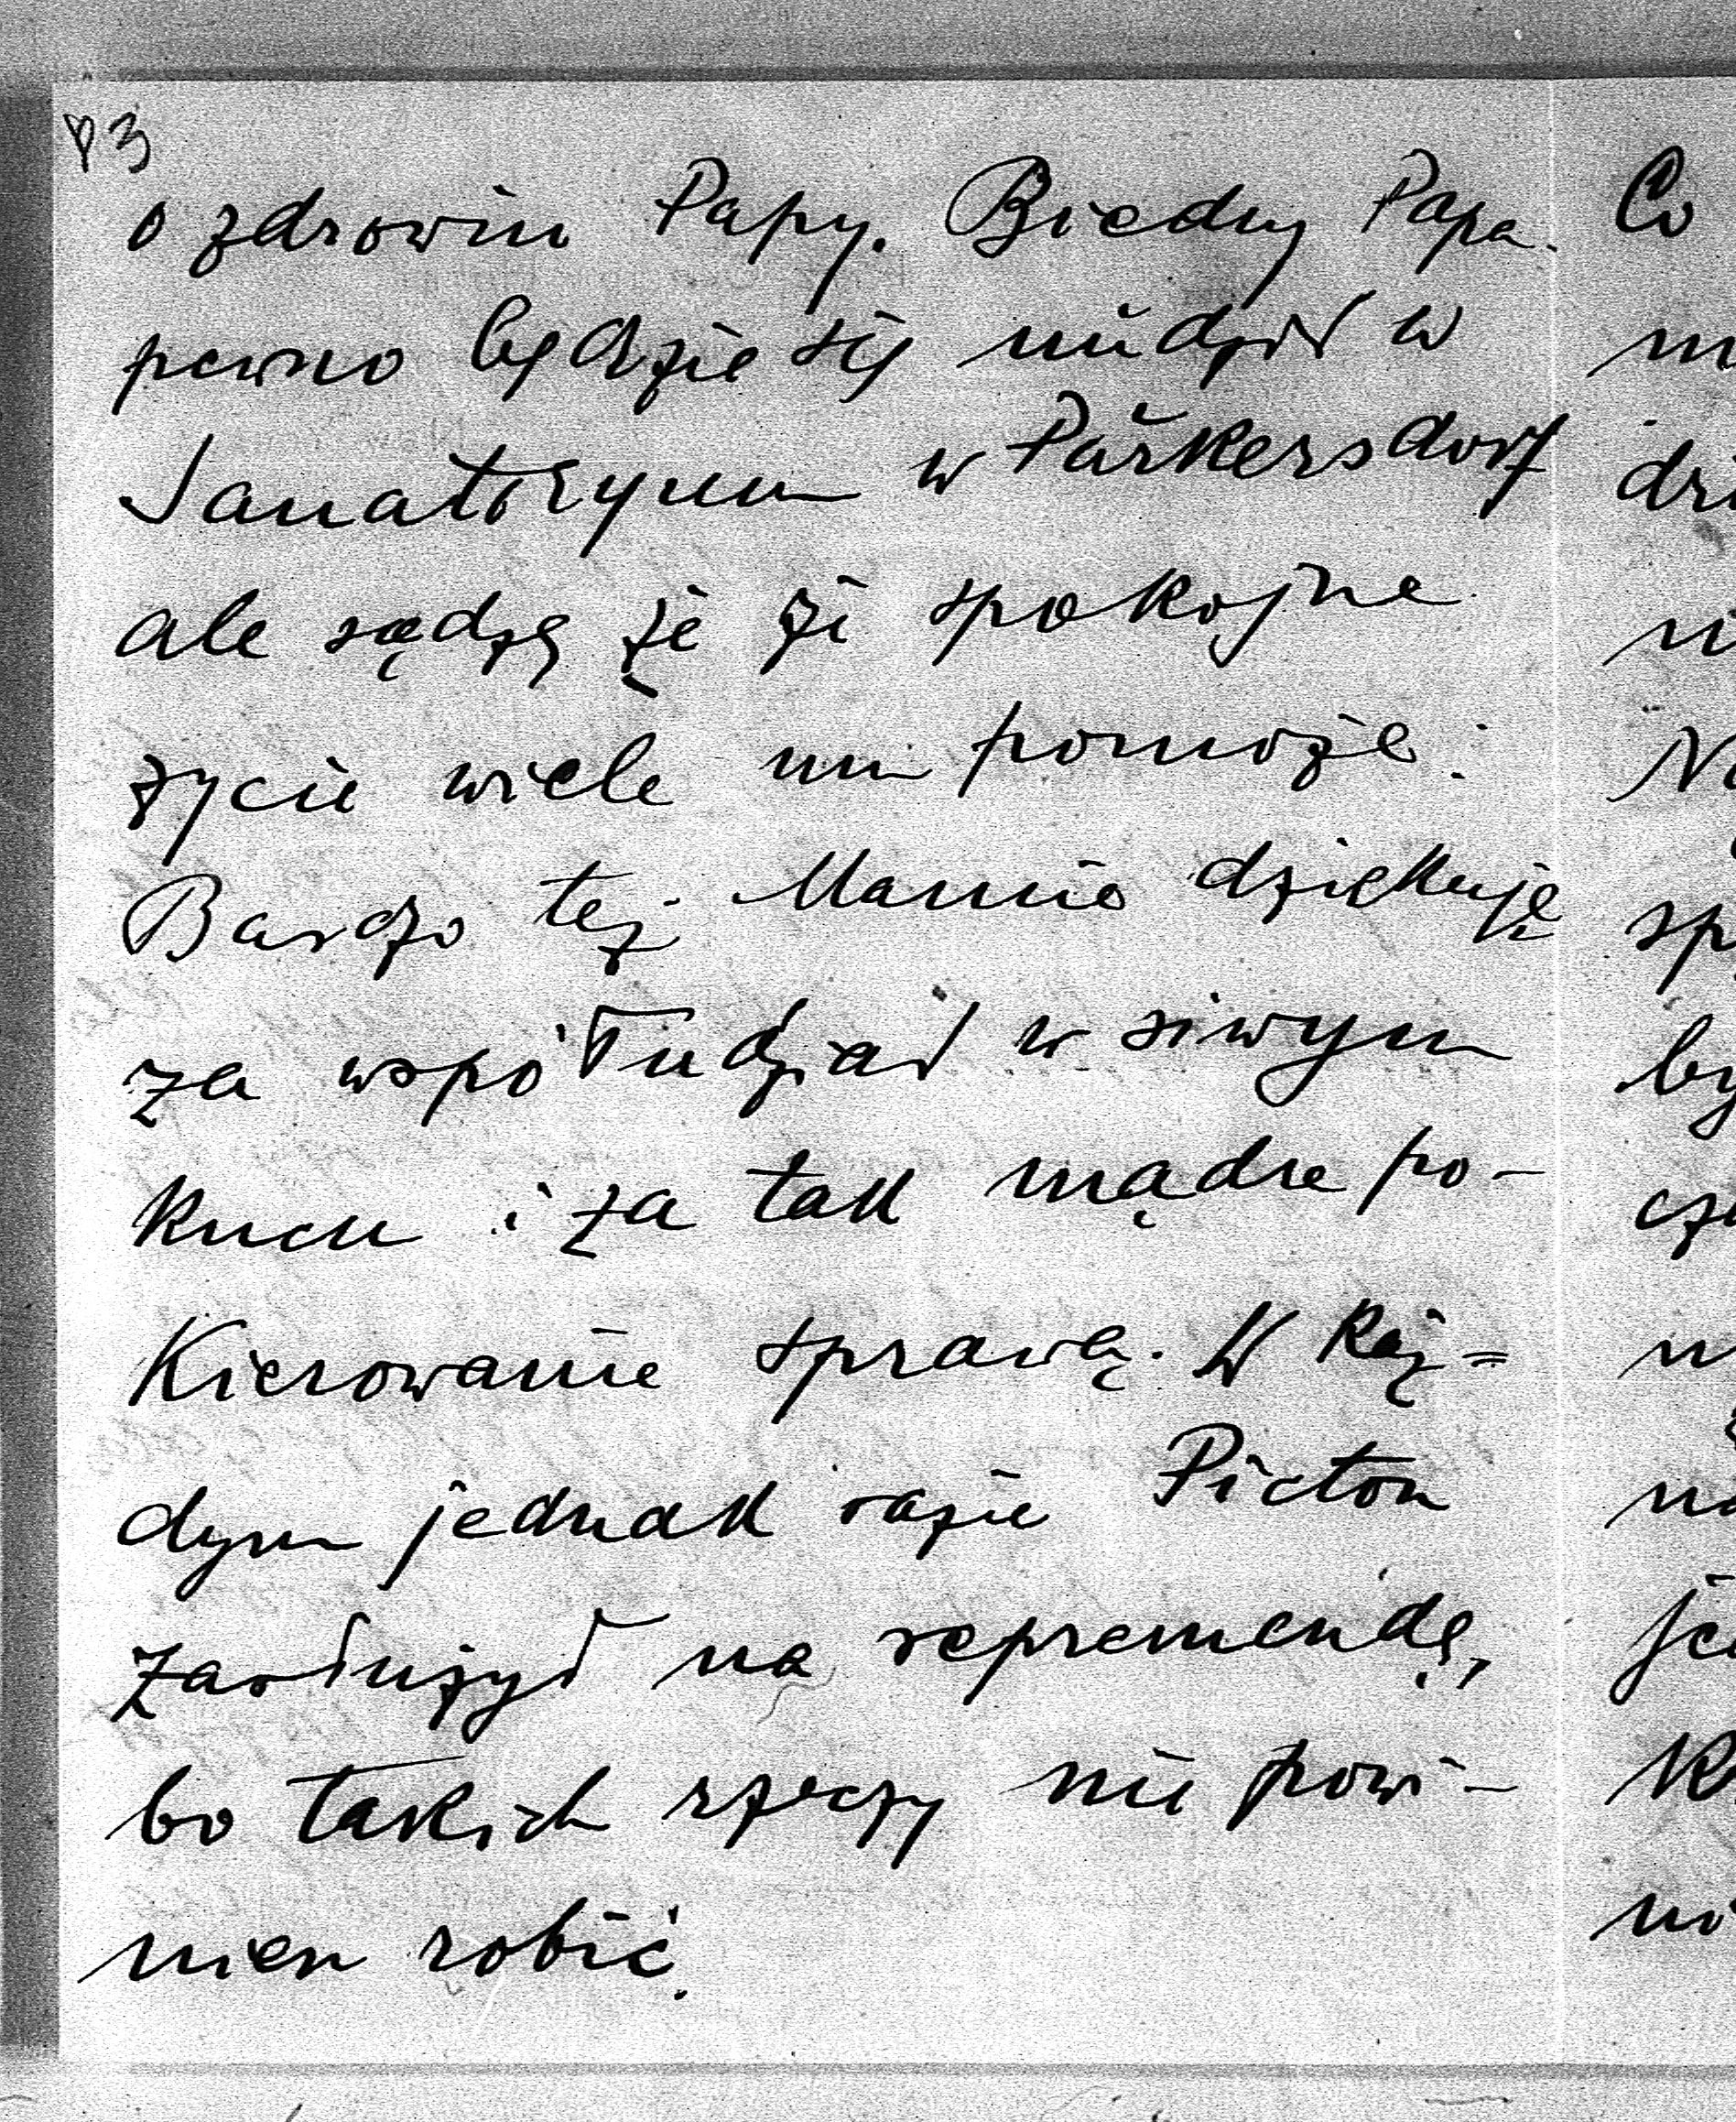 o zdrowiu Papy. Biedny Papa
pewno będzie się nudził w
Sanatoryum w Purkersdorf
ale sądzę że że spokojne
życie wiele mu pomoże.
Bardzo też Mamie dziękuję
za współudział w siwym
kucu i za tak mądre po-
kierowanie sprawą. W każ=
dym jednak razie Picton
zasłużył na repremendę,
bo takich rzeczy nie powi-
nien robić.
Co